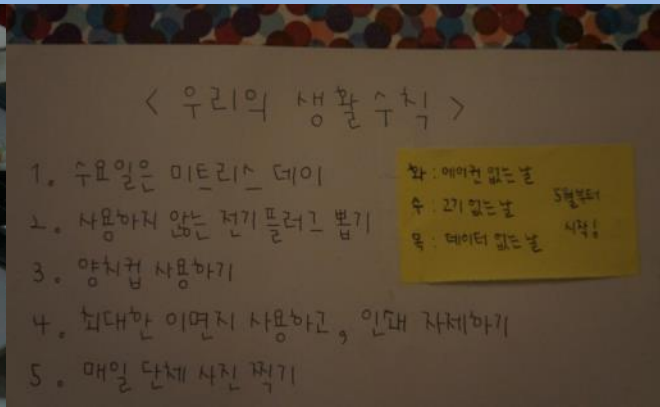 < 우리의 생활수칙 >
1. 수요일은 미트리스 데이
2. 사용하지 않는 전기 플러그 뽑기
3. 양치컵 사용하기
4. 최대한 이면지 사용하고, 인쇄 자제하기
5. 매일 단체 사진 찍기
화 : 에어컨 없는 날
수 : 고기 없는 날
목 : 데이터 없는 날
5월부터
시작!